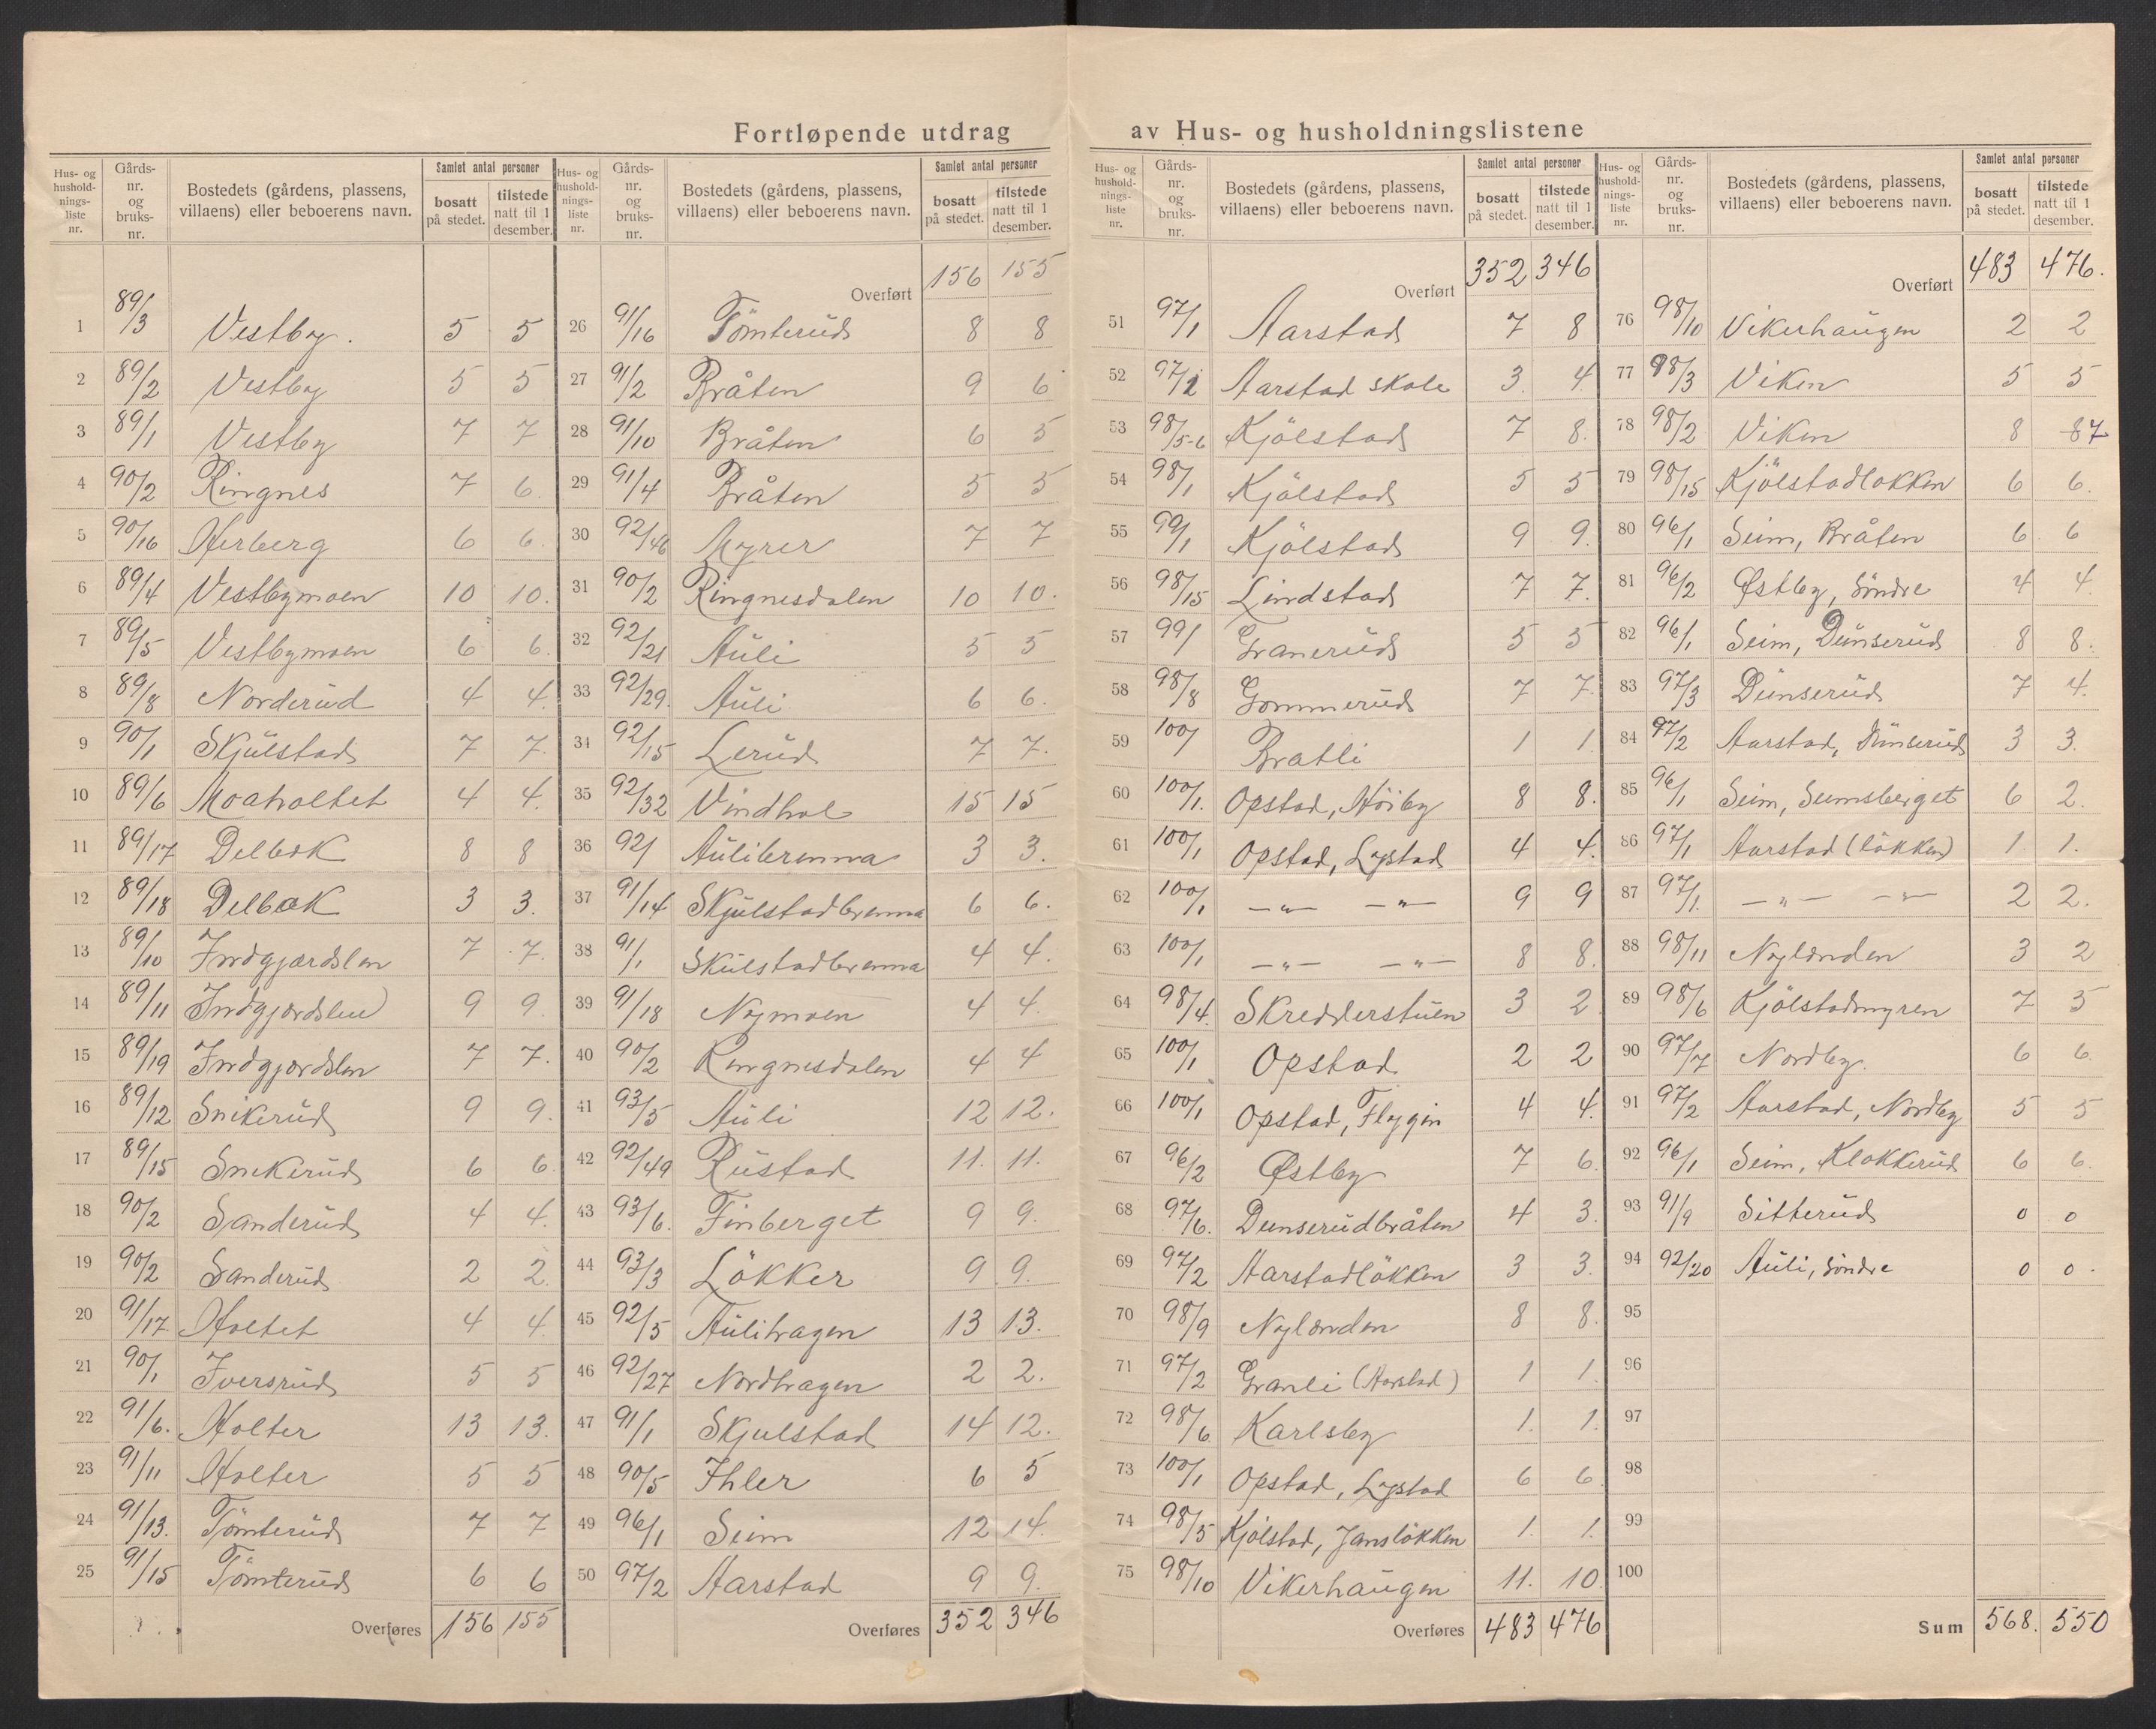 Fortløpende utdrag av Hus- og husholdningslistene
Hus- og hushold- nings- liste nr. | Gårds- nr. og bruks- nr. | Bostedets (gårdens, plassens, villaens) eller beboerens navn. | Samlet antal personer | bosatt på stedet. | tilstede natt til 1 desember.
1 89/3 Vestby. 5 5
2 89/2 Vestby 5 5
3 89/1 Vestby 7 7
4 90/2 Ringnes 7 6
5 90/16 Herberg 6 6
6 89/4 Vestbymoen 10 10.
7 89/5 Vestbymoen 6 6.
8 89/8 Norderud 4 4.
9 90/1 Skjulstad 7 7.
10 89/6 Moaholtet 4 4.
11 89/17 Delbæk 8 8
12 89/18 Delbæk 3 3.
13 89/10 Indgjærdslen 7 7.
14 89/11 Indgjærdslen 9 9.
15 89/19 Indgjærdslen 7 7.
16 89/12 Snikerud 9 9.
17 89/15 Snekerud 6 6
18 90/2 Sanderud 4 4.
19 90/2 Sanderud 2 2.
20 91/17 Holtet 4 4.
21 90/1 Iversrud 5 5
22 91/6. Holter 13 13.
23 91/11 Holter 5 5
24 91/13. Tömterud 7 7
25 91/15 Tömterud 6 6
Overføres 156 155
Hus- og hushold- nings- liste nr. | Gårds- nr. og bruks- nr. | Bostedets (gårdens, plassens, villaens) eller beboerens navn. | Samlet antal personer | bosatt på stedet. | tilstede natt til 1 desember.
Overført 156 155
26 91/16 Tömterud 8 8
27 91/2 Bråten 9 6
28 91/10 Bråten 6 5
29 91/4 Bråten 5 5
30 92/46 Myrer 7 7
31 90/2 Ringnesdalen 10 10.
32 92/21 Auli 5 5
33 92/29. Auli 6 6.
34 92/15 Lerud 7 7.
35 92/32 Vindhol 15 15
36 92/1 Aulibrenna 3 3.
37 91/14 Skjulstadbrenna 6 6.
38 91/1 Skulstadbrenna 4 4.
39 91/18 Nymoen 4 4.
40 90/2 Ringnesdalen 4 4
41 93/5 Auli 12 12.
42 92/49 Rustad 11. 11.
43 93/6. Finberget 9 9.
44 93/3 Lökker 9 9.
45 92/5 Aulihagen 13 13.
46 92/27 Nordhagen 2 2.
47 91/1 Skjulstad 14 12.
48 90/5 Ihler 6 5
49 96/1 Seim 12 14.
50 97/2 Aarstad 9 9.
Overføres 352 346
Hus- og hushold- nings- liste nr. | Gårds- nr. og bruks- nr. | Bostedets (gårdens, plassens, villaens) eller beboerens navn. | Samlet antal personer | bosatt på stedet. | tilstede natt til 1 desember.
Overført 352 346
51 97/1 Aarstad 7 8
52 97/2 Aarstad skole 3. 4.
53 98/5-6 Kjölstad 7 8.
54 98/1 Kjölstad 5 5
55 99/1 Kjölstad 9 9.
56 98/15 Lindstad 7 7.
57 99/1 Granerud 5 5
58 98/8 Gommerud 7 7.
59 100/1 Bratli 1 1
60 100/1. Opstad, Höiby 8 8.
61 100/1 Opstad, Lystad 4 4.
62 100/1 —"— —"— 9 9
63 100/1 —"— —"— 8 8.
64 98/4. Skredderstuen 3 2
65 100/1 Opstad 2 2
66 100/1 Opstad, Flygin 4 4.
67 96/2 Østby 7 6.
68 97/6. Dunserudbråten 4 3.
69 97/2 Aarstadlökken 3 3.
70 98/9 Nylænden 8 8.
71 97/2 Granli (Aarstad) 1 1.
72 98/6 Karlsby 1. 1.
73 100/1 Opstad, Lystad 6 6
74 98/5 Kjölstad, Janslökken 1. 1.
75 98/10 Vikerhaugen 11. 10
Overføres 483 476
Hus- og hushold- nings- liste nr. | Gårds- nr. og bruks- nr. | Bostedets (gårdens, plassens, villaens) eller beboerens navn. | Samlet antal personer | bosatt på stedet. | tilstede natt til 1 desember.
Overført 483 476.
76 98/10 Vikerhaugen 2 2
77 98/3 Viken 5 5
78 98/2 Viken 8 8 7
79 98/15 Kjölstadlökken 6 6.
80 96/1 Seim, Bråten 6 6
81 96/2 Østby, söndre 4 4.
82 96/1 Seim, Dunserud 8 8.
83 97/3 Dunserud 7 4.
84 97/2 Aarstad, Dunserud 3 3.
85 96/1 Seim, Seimsberget 6 2.
86 97/1 Aarstad (lökken) 1 1.
87 97/1. —"— —"— 2 2.
88 98/11 Nylænden 3 2
89 98/6 Kjölstadmyren 7 5
90 97/7 Nordby. 6 6.
91 97/2 Aarstad, Nordby 5 5
92 96/1 Seim, Klokkerud 6 6.
93 91/9 Sitterud 0 0
94 92/20 Auli, söndre 0 0.
95
96
97
98
99
100
Sum 568. 550